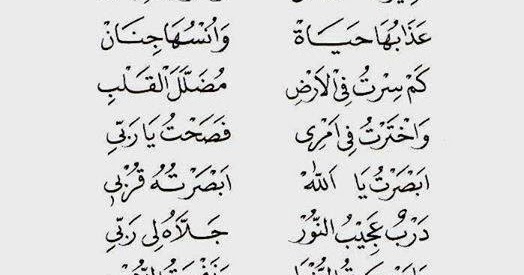 عَذَابُهَا حَيَاةْ وَاُنْسُهَا جِنَانْ
كَمْ سِرْتُ فِى الْاَرْضِ مُضَلَّلَ الْقَلْبِ
وَاخْتَرْتُ فِى اَمْرِى فَصَحْتُ يَا رَبِّي
اَبْصَرْتُ يَا اَللهْ اَبْصَرْتُهُ قُرْبِي
دَرْبٌ عَجِيْبُ النُّوْرْ جَلَّاهُ لِى رَبِّي